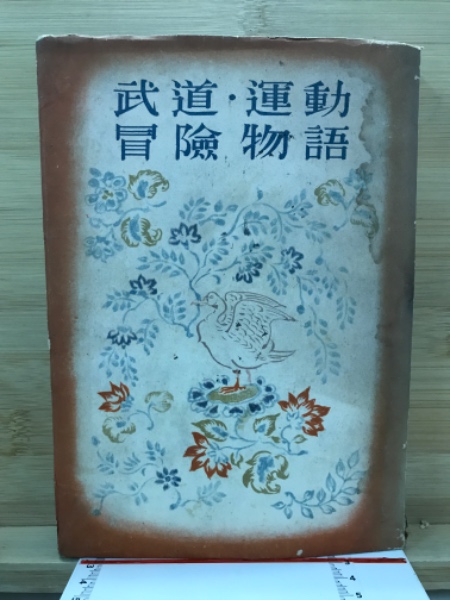 武道・運動
冒險物語